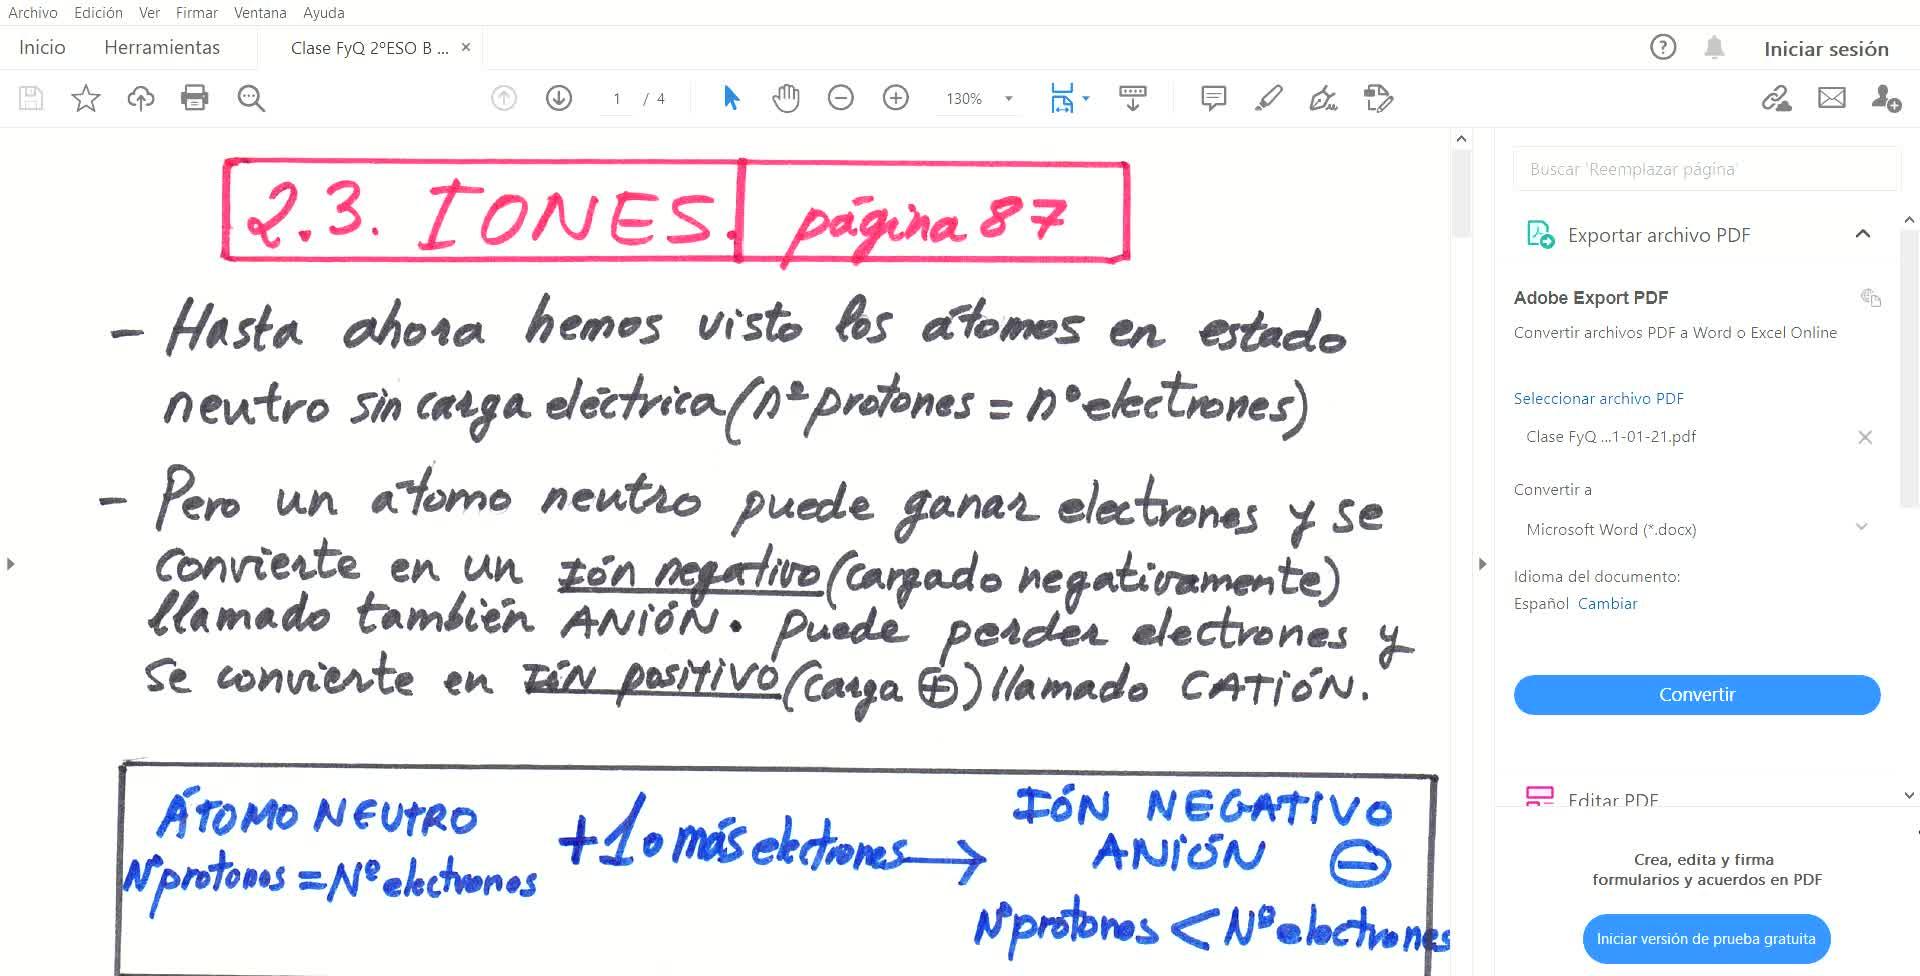 Archivo Edición Ver Firmar Ventana Ayuda
Inicio Herramientas Clase FyQ 2ºESO B ... × Iniciar sesión
1 / 4 130%
2.3. IONES. página 87
- Hasta ahora hemos visto los átomos en estado
neutro sin carga eléctrica (nº protones = nº electrones)
- Pero un átomo neutro puede ganar electrones y se
convierte en un Ión negativo (cargado negativamente)
llamado también ANIÓN. Puede perder electrones y
se convierte en IÓN POSITIVO (carga +) llamado CATIÓN.
ÁTOMO NEUTRO
Nº protones = Nº electrones
+ 1 o más electrones →
IÓN NEGATIVO
ANIÓN −
Nº protones < Nº electrones
Buscar 'Reemplazar página'
Exportar archivo PDF
Adobe Export PDF
Convertir archivos PDF a Word o Excel Online
Seleccionar archivo PDF
Clase FyQ ...1-01-21.pdf
Convertir a
Microsoft Word (*.docx)
Idioma del documento:
Español Cambiar
Convertir
Editar PDF
Crea, edita y firma
formularios y acuerdos en PDF
Iniciar versión de prueba gratuita